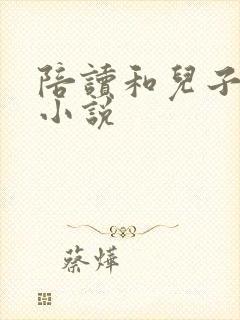 陪讀和兒子
小說
蔡燁